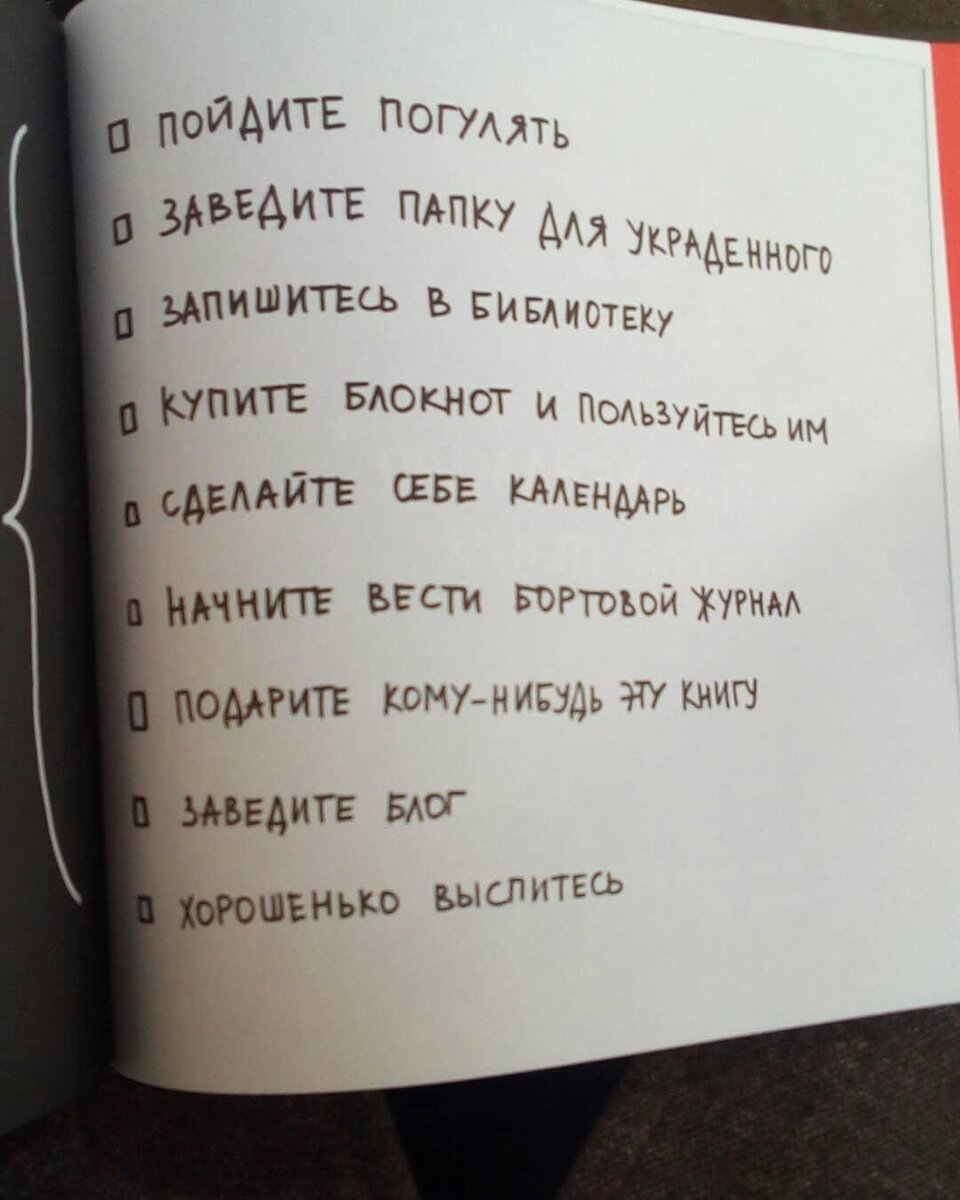 ПОЙДИТЕ ПОГУЛЯТЬ
ЗАВЕДИТЕ ПАПКУ ДЛЯ УКРАДЕННОГО
ЗАПИШИТЕСЬ В БИБЛИОТЕКУ
КУПИТЕ БЛОКНОТ И ПОЛЬЗУЙТЕСЬ ИМ
СДЕЛАЙТЕ СЕБЕ КАЛЕНДАРЬ
НАЧНИТЕ ВЕСТИ БОРТОВОЙ ЖУРНАЛ
ПОДАРИТЕ КОМУ-НИБУДЬ ЭТУ КНИГУ
ЗАВЕДИТЕ БЛОГ
ХОРОШЕНЬКО ВЫСПИТЕСЬ